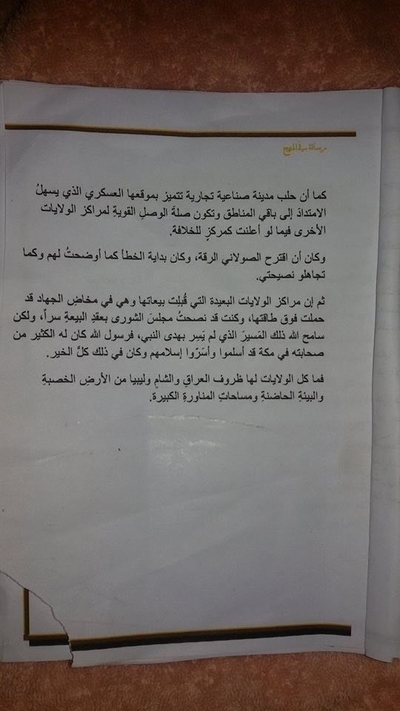 كما أن حلب مدينة صناعية تجارية تتميز بموقعها العسكري الذي يسهلُ
الامتدادَ إلى باقي المناطق وتكون صلةَ الوصلِ القويةِ لمراكز الولايات
الأخرى فيما لو أعلنت كمركزٍ للخلافة.
وكان أن اقترح الصولاني الرقة، وكان بداية الخطأ كما أوضحتُ لهم وكما
تجاهلو نصيحتي.
ثم إن مراكز الولايات البعيدة التي قُبِلت بيعاتها وهي في مخاضِ الجهاد قد
حملت فوق طاقتها، وكنت قد نصحتُ مجلسَ الشورى بعقدِ البيعةِ سراً، ولكن
سامح الله ذلك المَسيرَ الذي لم يَسِر بهدى النبي، فرسول الله كان له الكثير من
صحابته في مكة قد أسلموا وأسَرّوا إسلامهم وكان في ذلك كلَّ الخير.
فما كل الولايات لها ظروف العراقِ والشامِ وليبيا من الأرضِ الخصبةِ
والبيئةِ الحاضنةِ ومساحاتِ المناورةِ الكبيرة.